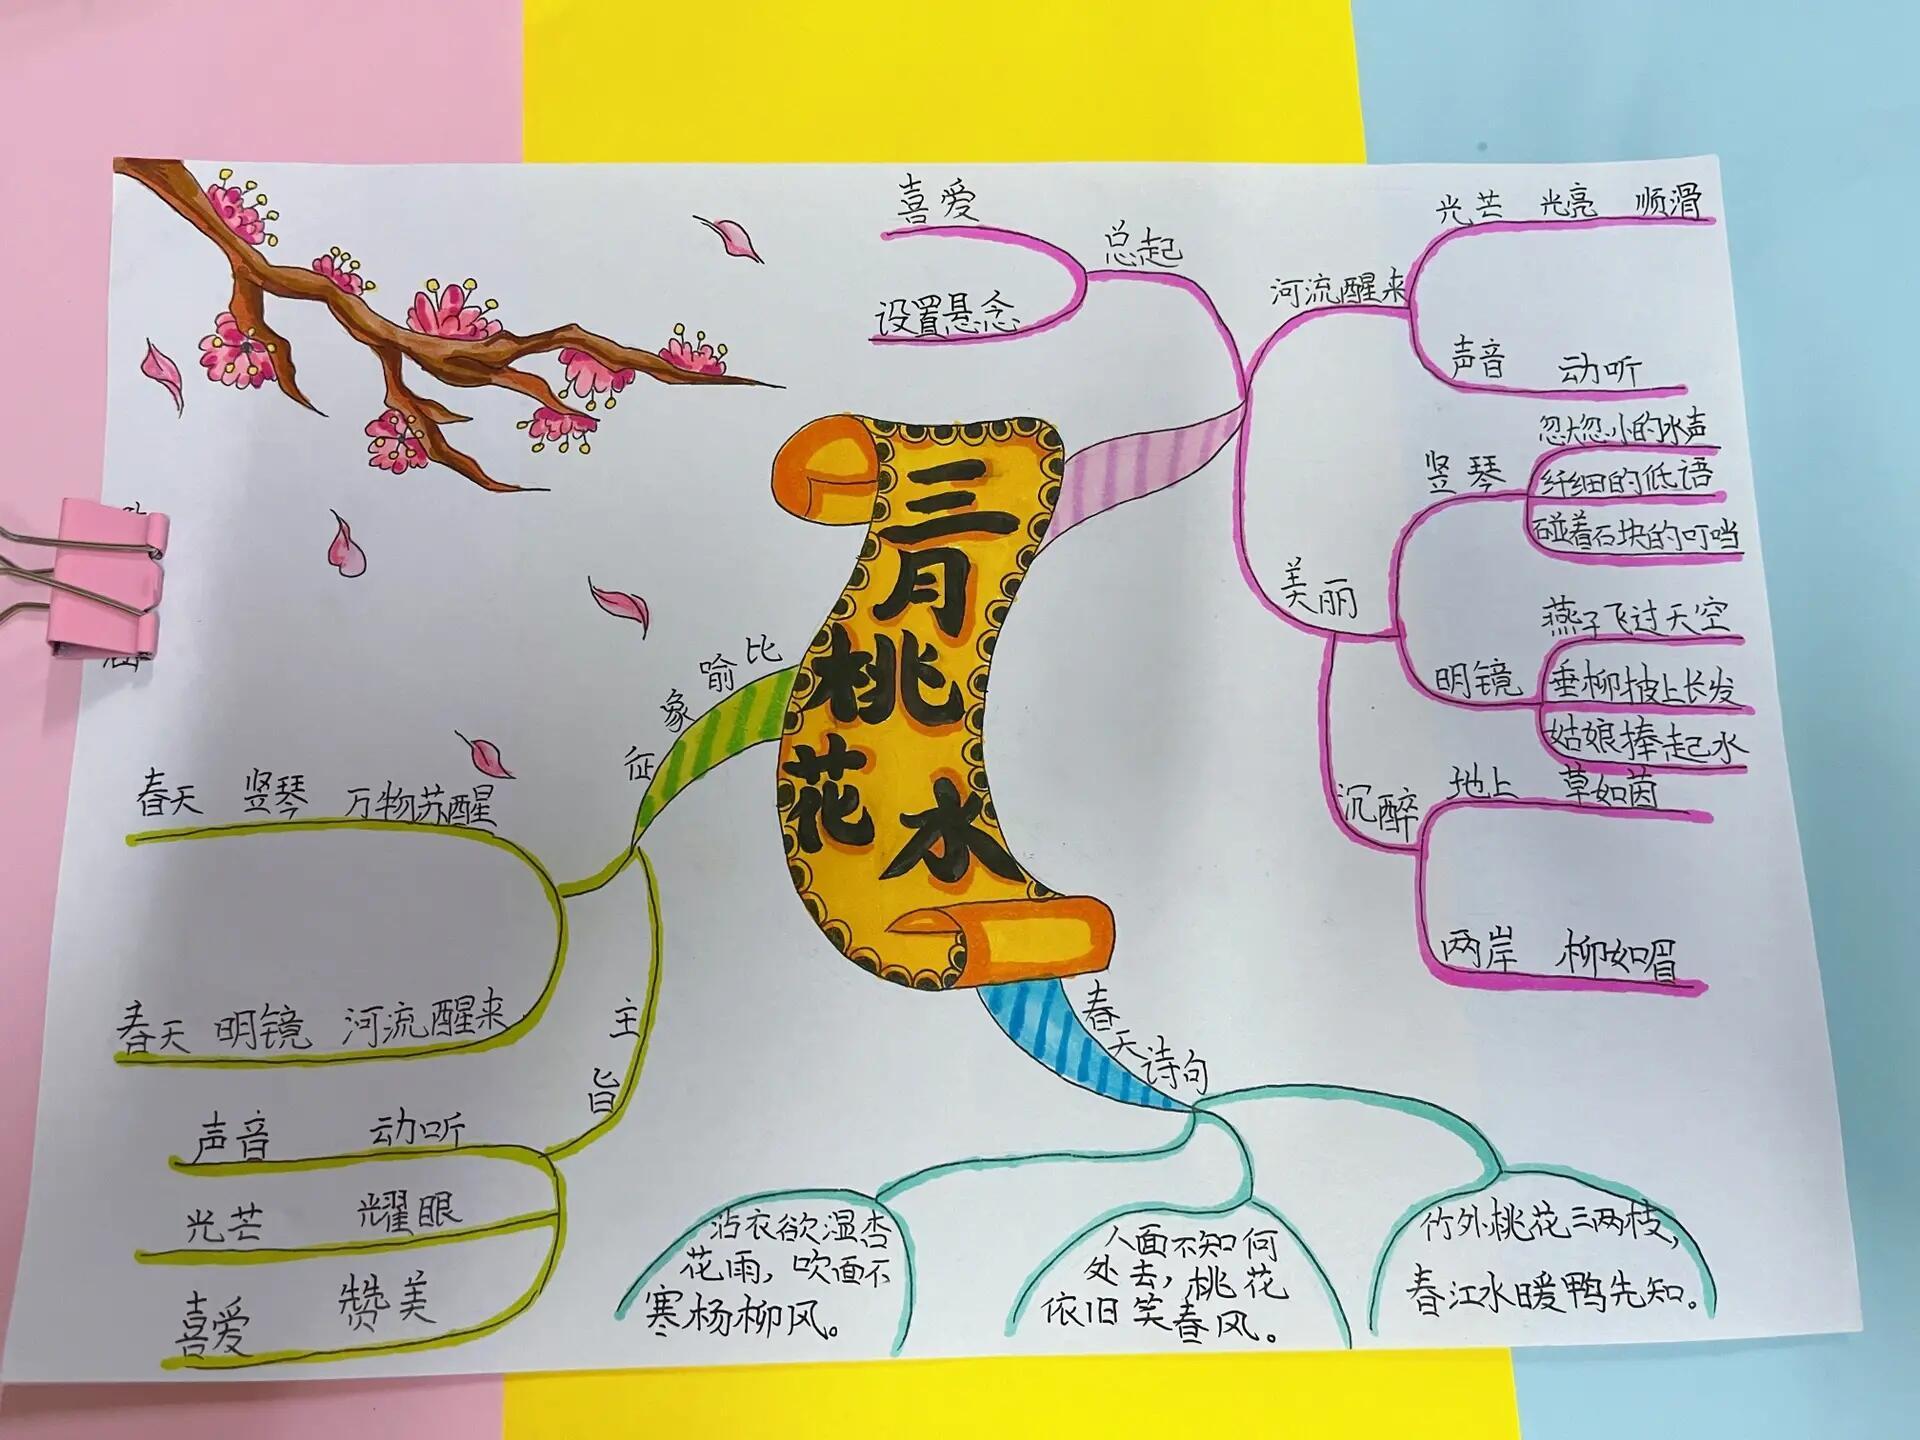 三月桃花水
总起
喜爱
设置悬念
河流醒来
光芒 光亮 顺滑
声音 动听
美丽
竖琴
忽大忽小的水声
纤细的低语
碰着石块的叮当
明镜
燕子飞过天空
垂柳披上长发
姑娘捧起水
沉醉
地上 草如茵
两岸 柳如眉
比喻象征
春天 竖琴 万物苏醒
春天 明镜 河流醒来
主旨
声音 动听
光芒 耀眼
喜爱 赞美
春天诗句
沾衣欲湿杏
花雨，吹面不
寒杨柳风。
人面不知何
处去，桃花
依旧笑春风。
竹外桃花三两枝，
春江水暖鸭先知。